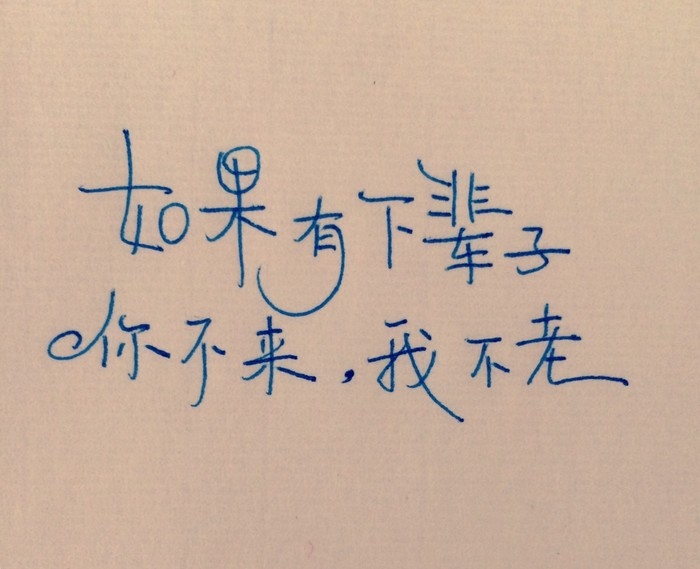 如果有下辈子
你不来,我不老